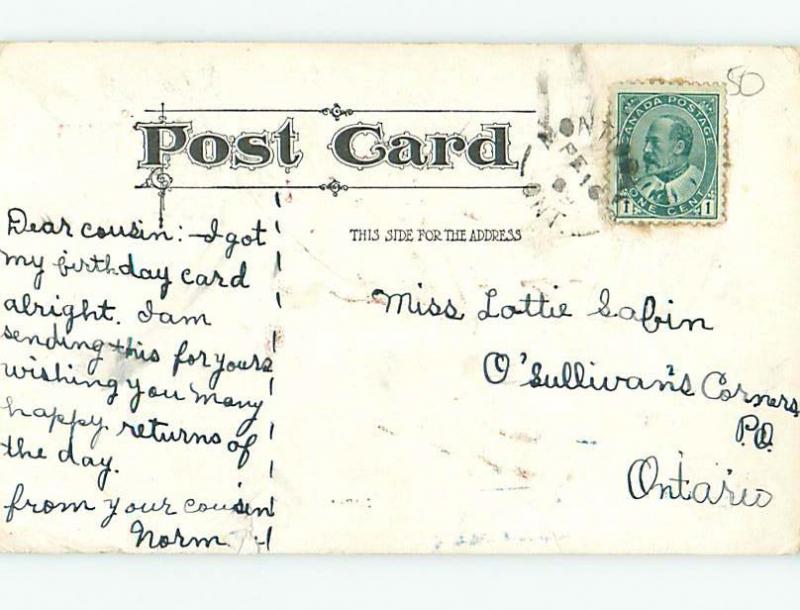 80
CANADA POSTAGE
ONE CENT
1 1
FE 16
ONT
Post Card
THIS SIDE FOR THE ADDRESS
Dear cousin:- I got
my birthday card
alright. I am
sending this for yours
wishing you many
happy returns of
the day.
from your cousin
Norm.
Miss Lottie Sabin
O'Sullivan's Corners
P.O.
Ontario